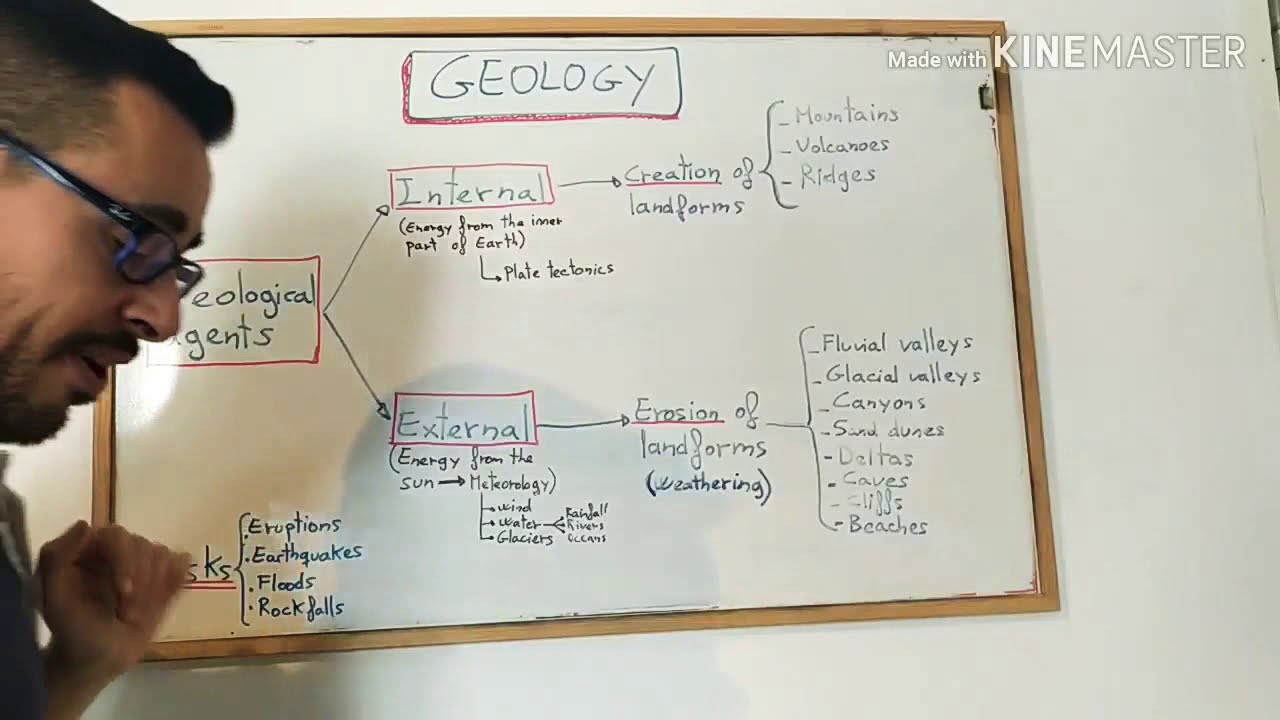 Made with KINEMASTER
GEOLOGY
Internal
(Energy from the inner
part of Earth)
Plate tectonics
Creation of
landforms
- Mountains
- Volcanoes
- Ridges
eological
gents
External
(Energy from the
sun → Meteorology)
wind
water
Glaciers
Rainfall
Rivers
Oceans
Erosion of
landforms
(weathering)
- Fluvial valleys
- Glacial valleys
- Canyons
- Sand dunes
- Deltas
- Caves
- Cliffs
- Beaches
sks
. Eruptions
. Earthquakes
. Floods
. Rockfalls